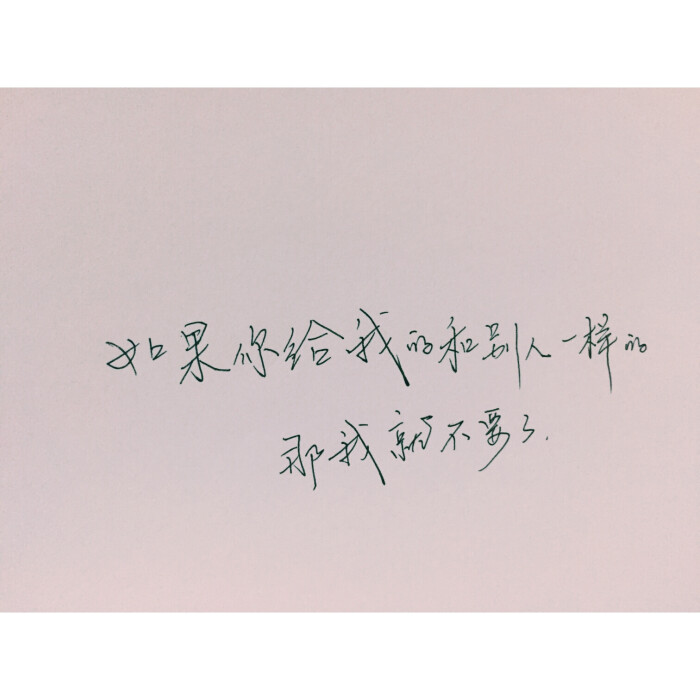 如果你给我的和别人一样的
那我就不要了.